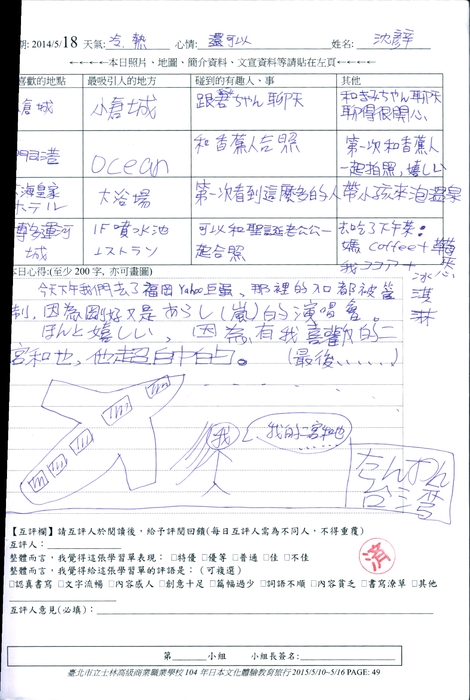 期: 2014/5/18 天氣: 冷.熱 心情: 還可以 姓名:
←←←←←←←←←本日照片、地圖、簡介資料、文宣資料等請貼在左頁←←←←←←←←←
喜歡的地點 最吸引人的地方 碰到的有趣人、事 其他
倉城 小倉城 跟 ちゃん聊天 和 ちゃん聊天
聊得很開心
門司港 Ocean 和香蕉人合照 第一次和香蕉人
一起拍照,嬉しい
海皇家
ホテル 大浴場 第一次看到這麼多的人帶小孩來泡溫泉
博多運河
城 1F噴水池
レストラン 可以和聖誕老公公一
起合照 去吃了下午茶:
媽 coffee+
我ココア+冰
淇
淋
本日心得:(至少200字, 亦可畫圖)
今天下午我們去了福岡Yahoo巨蛋,那裡的 都被管
制,因為剛好又是あらし(嵐)的演唱會。
ほんと嬉しい,因為有我喜歡的二
宮和也,他超 。 (最後......)
我 我的二宮和也
台灣
【互評欄】請互評人於閱讀後,給予評閱回饋(每日互評人需為不同人,不得重覆)
互評人:
整體而言,我覺得這張學習單表現: □特優 □優等 □普通 □佳 □不佳
整體而言,我覺得給這張學習單的評語是: (可複選)
□認真書寫 □文字流暢 □內容感人 □創意十足 □篇幅過少 □詞語不順 □內容貧乏 □書寫潦草 □其他
済
互評人意見(必填):
第 小組 小組長簽名:
臺北市立士林高級商業職業學校 104 年日本文化體驗教育旅行 2015/5/10~5/16 PAGE: 49